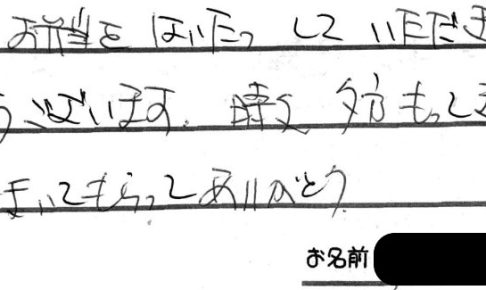 お弁当を はいたつ して いただき
うございます。時々 夕方 もって
きいてもらってありがとう
お名前